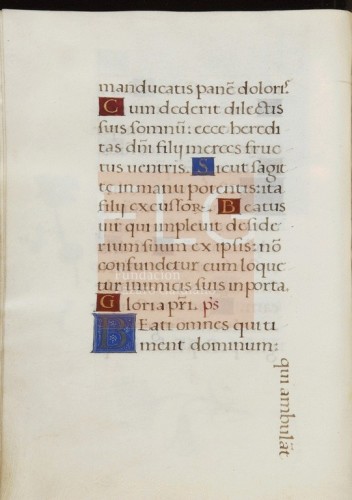 manducatis panē doloris.
Cum dederit dilectis
suis somnū: ecce heredi
tas dn̄i filij merces fruc
tus uentris. Sicut sagit
te in manu potentis: ita
filij excussor. Beatus
uir qui impleuit deside
rium suum ex ipsis: nō
confundetur cum loque
tur inimicis suis in porta.
Gloria pr̄i. p̄s
Beati omnes qui ti
ment dominum:
qui ambulāt
FLG
Fundación